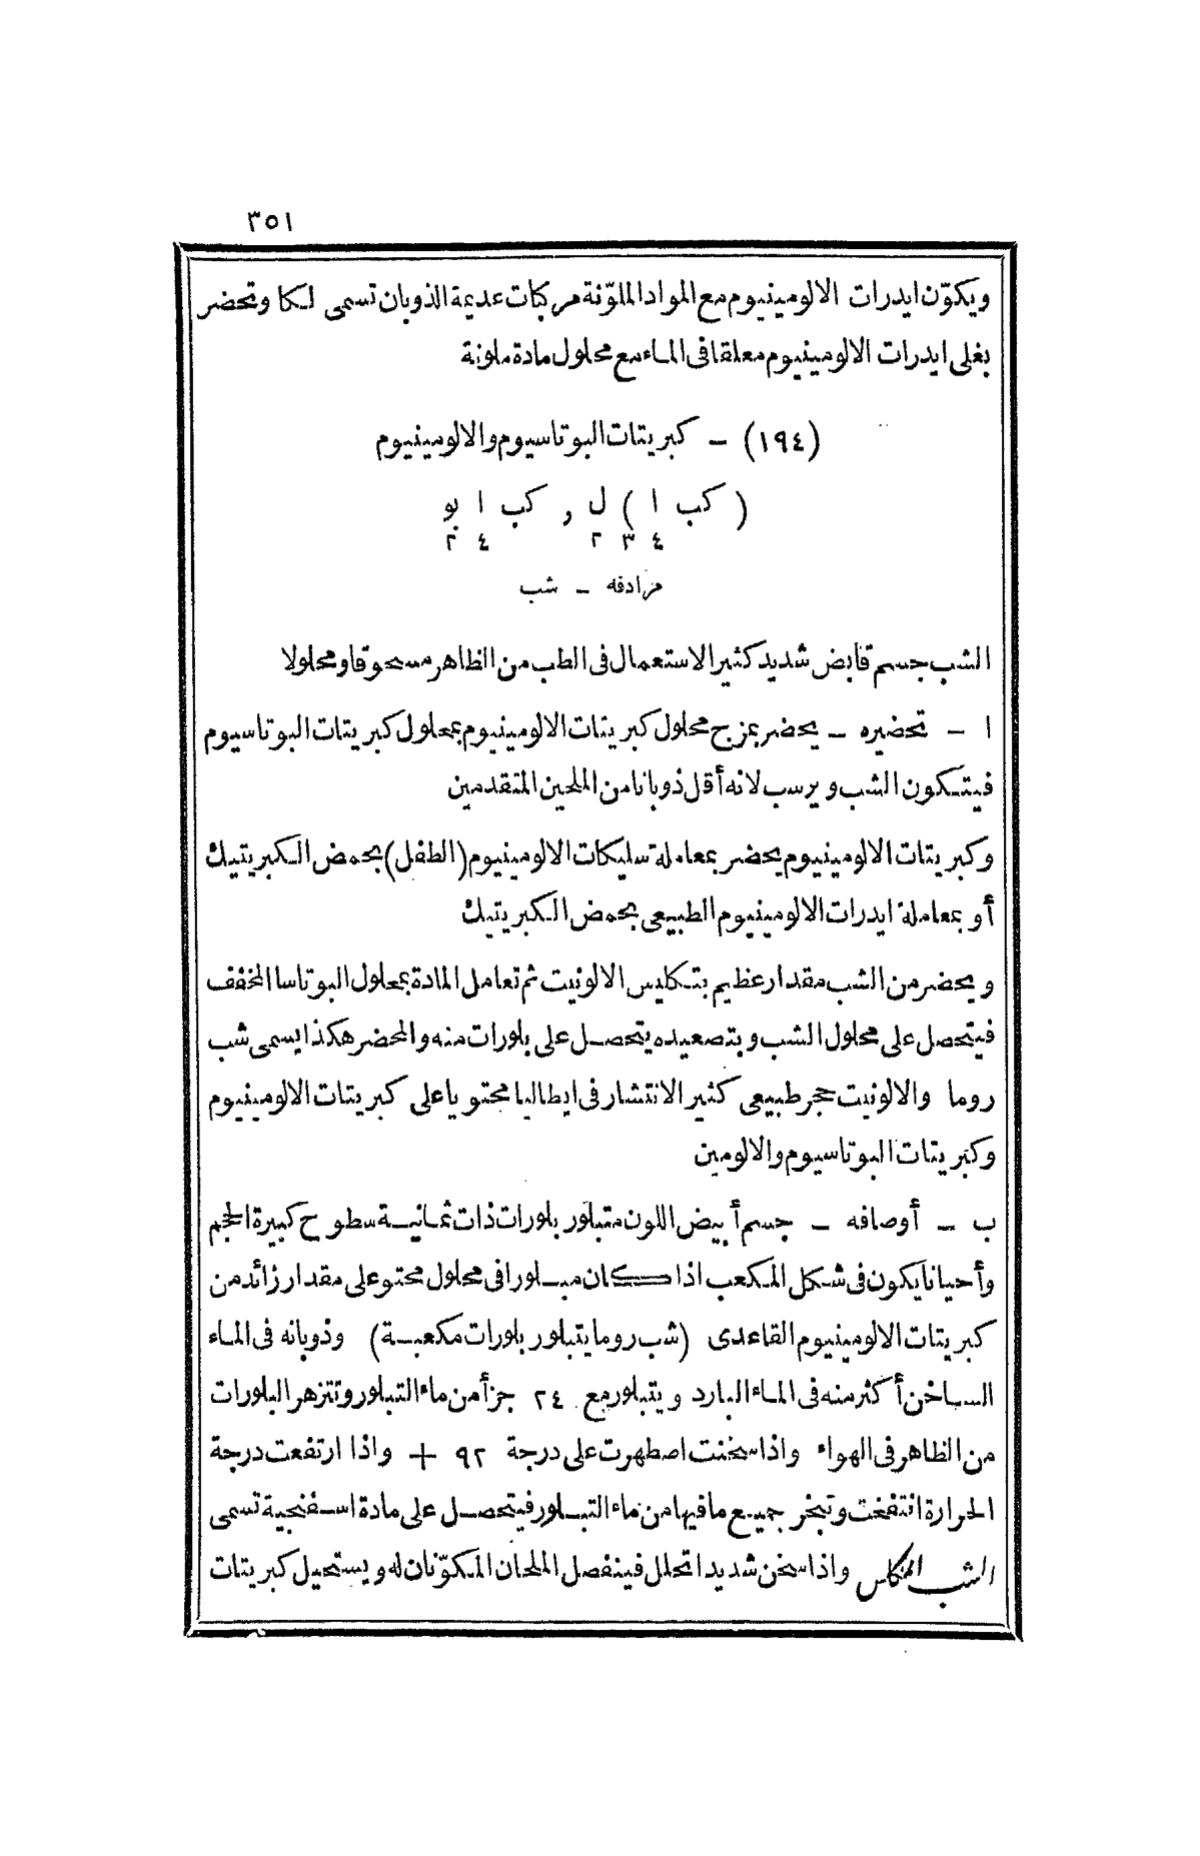 ٣٥١
ويكوّن ايدرات الالومينيوم مع المواد الملوّنة مركبات عديمة الذوبان تسمى لكا وتحضر
بغلى ايدرات الالومينيوم معلقا فى الماء مع محلول مادة ملونة
(١٩٤) – كبريتات البوتاسيوم والالومينيوم
(كب ا ) ل , كب ا بو
٤ ٣ ٢ ٤ ٢
مرادفه – شب
الشب جسم قابض شديد كثير الاستعمال فى الطب من الظاهر مسحوقا ومحلولا
ا – تحضيره – يحضر بمزج محلول كبريتات الالومينيوم بمحلول كبريتات البوتاسيوم
فيتكون الشب ويرسب لانه أقل ذوبانا من الملحين المتقدمين
وكبريتات الالومينيوم يحضر بمعاملة سليكات الالومينيوم (الطفل) بحمض الكبريتيك
أو بمعاملة ايدرات الالومينيوم الطبيعى بحمض الكبريتيك
ويحضر من الشب مقدار عظيم بتكليس الالونيت ثم تعامل المادة بمحلول البوتاسا المخفف
فيتحصل على محلول الشب وبتصعيده يتحصل على بلورات منه والمحضر هكذا يسمى شب
روما والالونيت حجر طبيعى كثير الانتشار فى ايطاليا محتو يا على كبريتات الالومينيوم
وكبريتات البوتاسيوم والالومين
ب – أوصافه – جسم أبيض اللون متبلور بلورات ذات ثمانية سطوح كبيرة الحجم
وأحيانا يكون فى شكل المكعب اذا كان مبلورا فى محلول محتو على مقدار زائد من
كبريتات الالومينيوم القاعدى (شب روما يتبلور بلورات مكعبة) وذوبانه فى الماء
الساخن أكثر منه فى الماء البارد ويتبلور مع ٢٤ جزأ من ماء التبلور وتتزهر البلورات
من الظاهر فى الهواء واذا سخنت اصطهرت على درجة ٩٢ + واذا ارتفعت درجة
الحرارة انتفخت وتبخر جميع ما فيها من ماء التبلور فيتحصل على مادة اسفنجية تسمى
الشب المكلس واذا سخن شديدا تحلل فينفصل الملحان المكوّنان له ويستحيل كبريتات